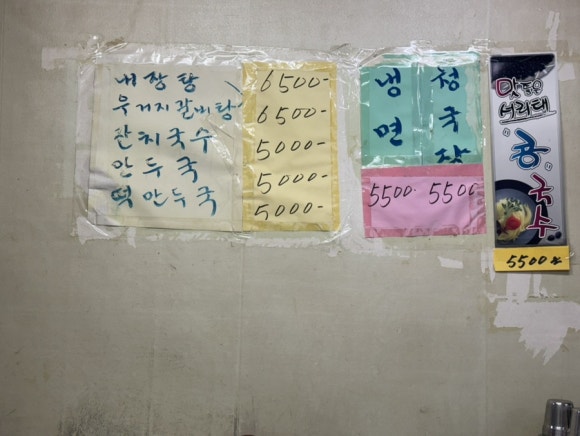 내장탕 6500-
우거지갈비탕 6500-
잔치국수 5000-
만두국 5000-
떡만두국 5000-
냉면 5500-
청국장 5500
맛좋은
서리태
콩국수
5500